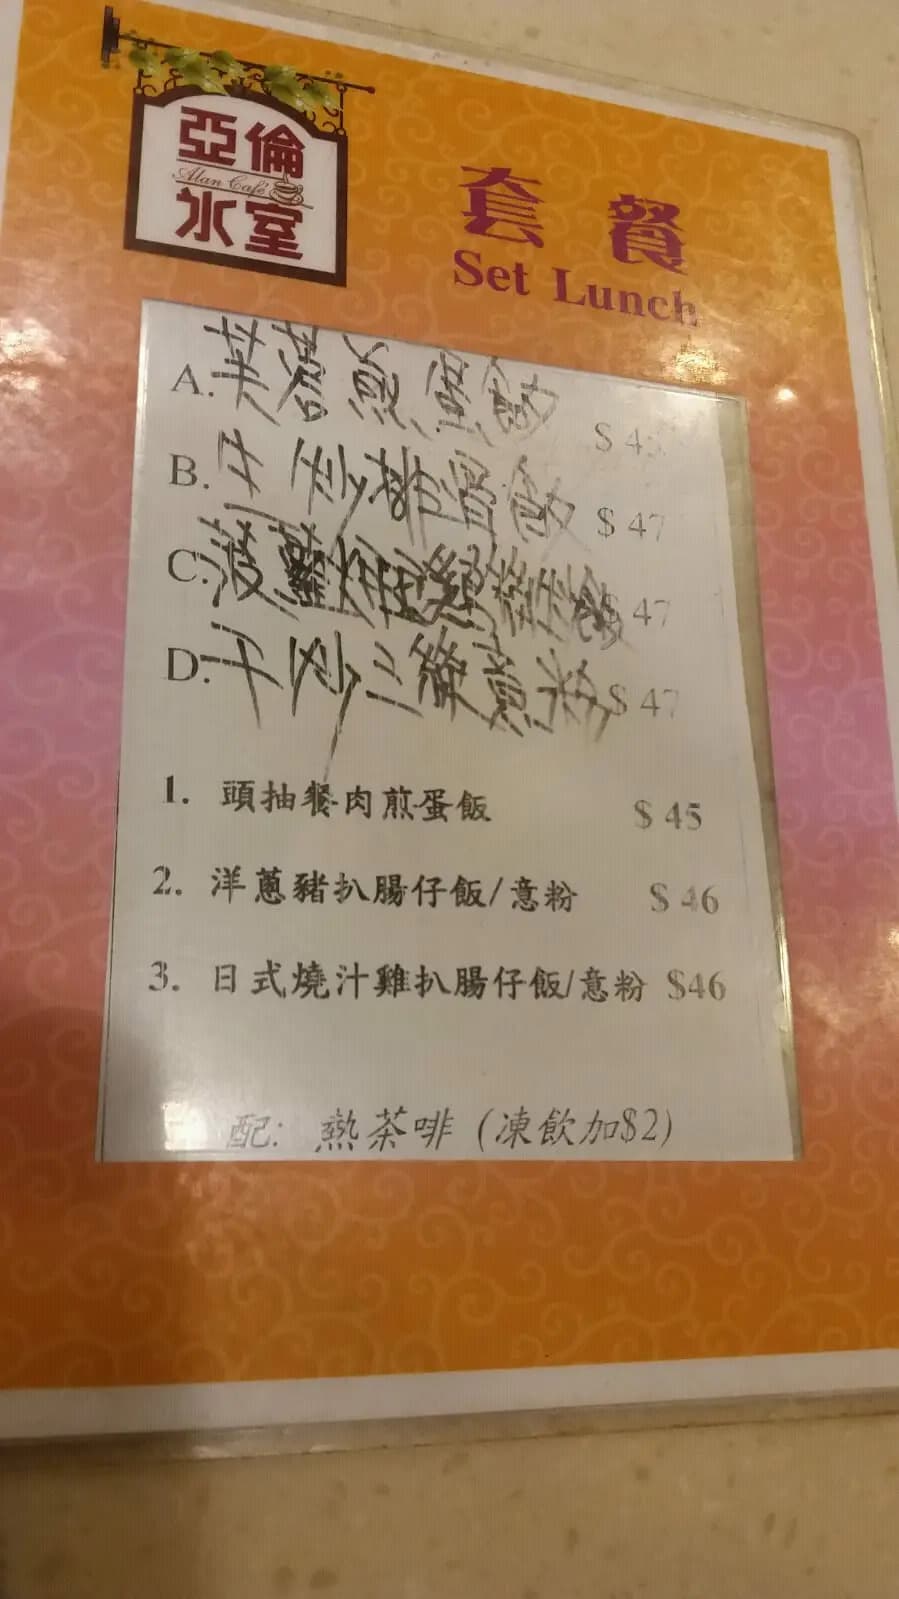 亞倫
Alan Café
冰室
套餐
Set Lunch
A. 芙蓉煎蛋飯 $ 4
B. 干炒排骨飯 $ 47
C. 菠蘿 $ 47
D. 干炒三絲意粉 $ 47
1. 頭抽餐肉煎蛋飯 $ 45
2. 洋蔥豬扒腸仔飯/意粉 $ 46
3. 日式燒汁雞扒腸仔飯/意粉 $46
配: 熱茶啡 (凍飲加$2)